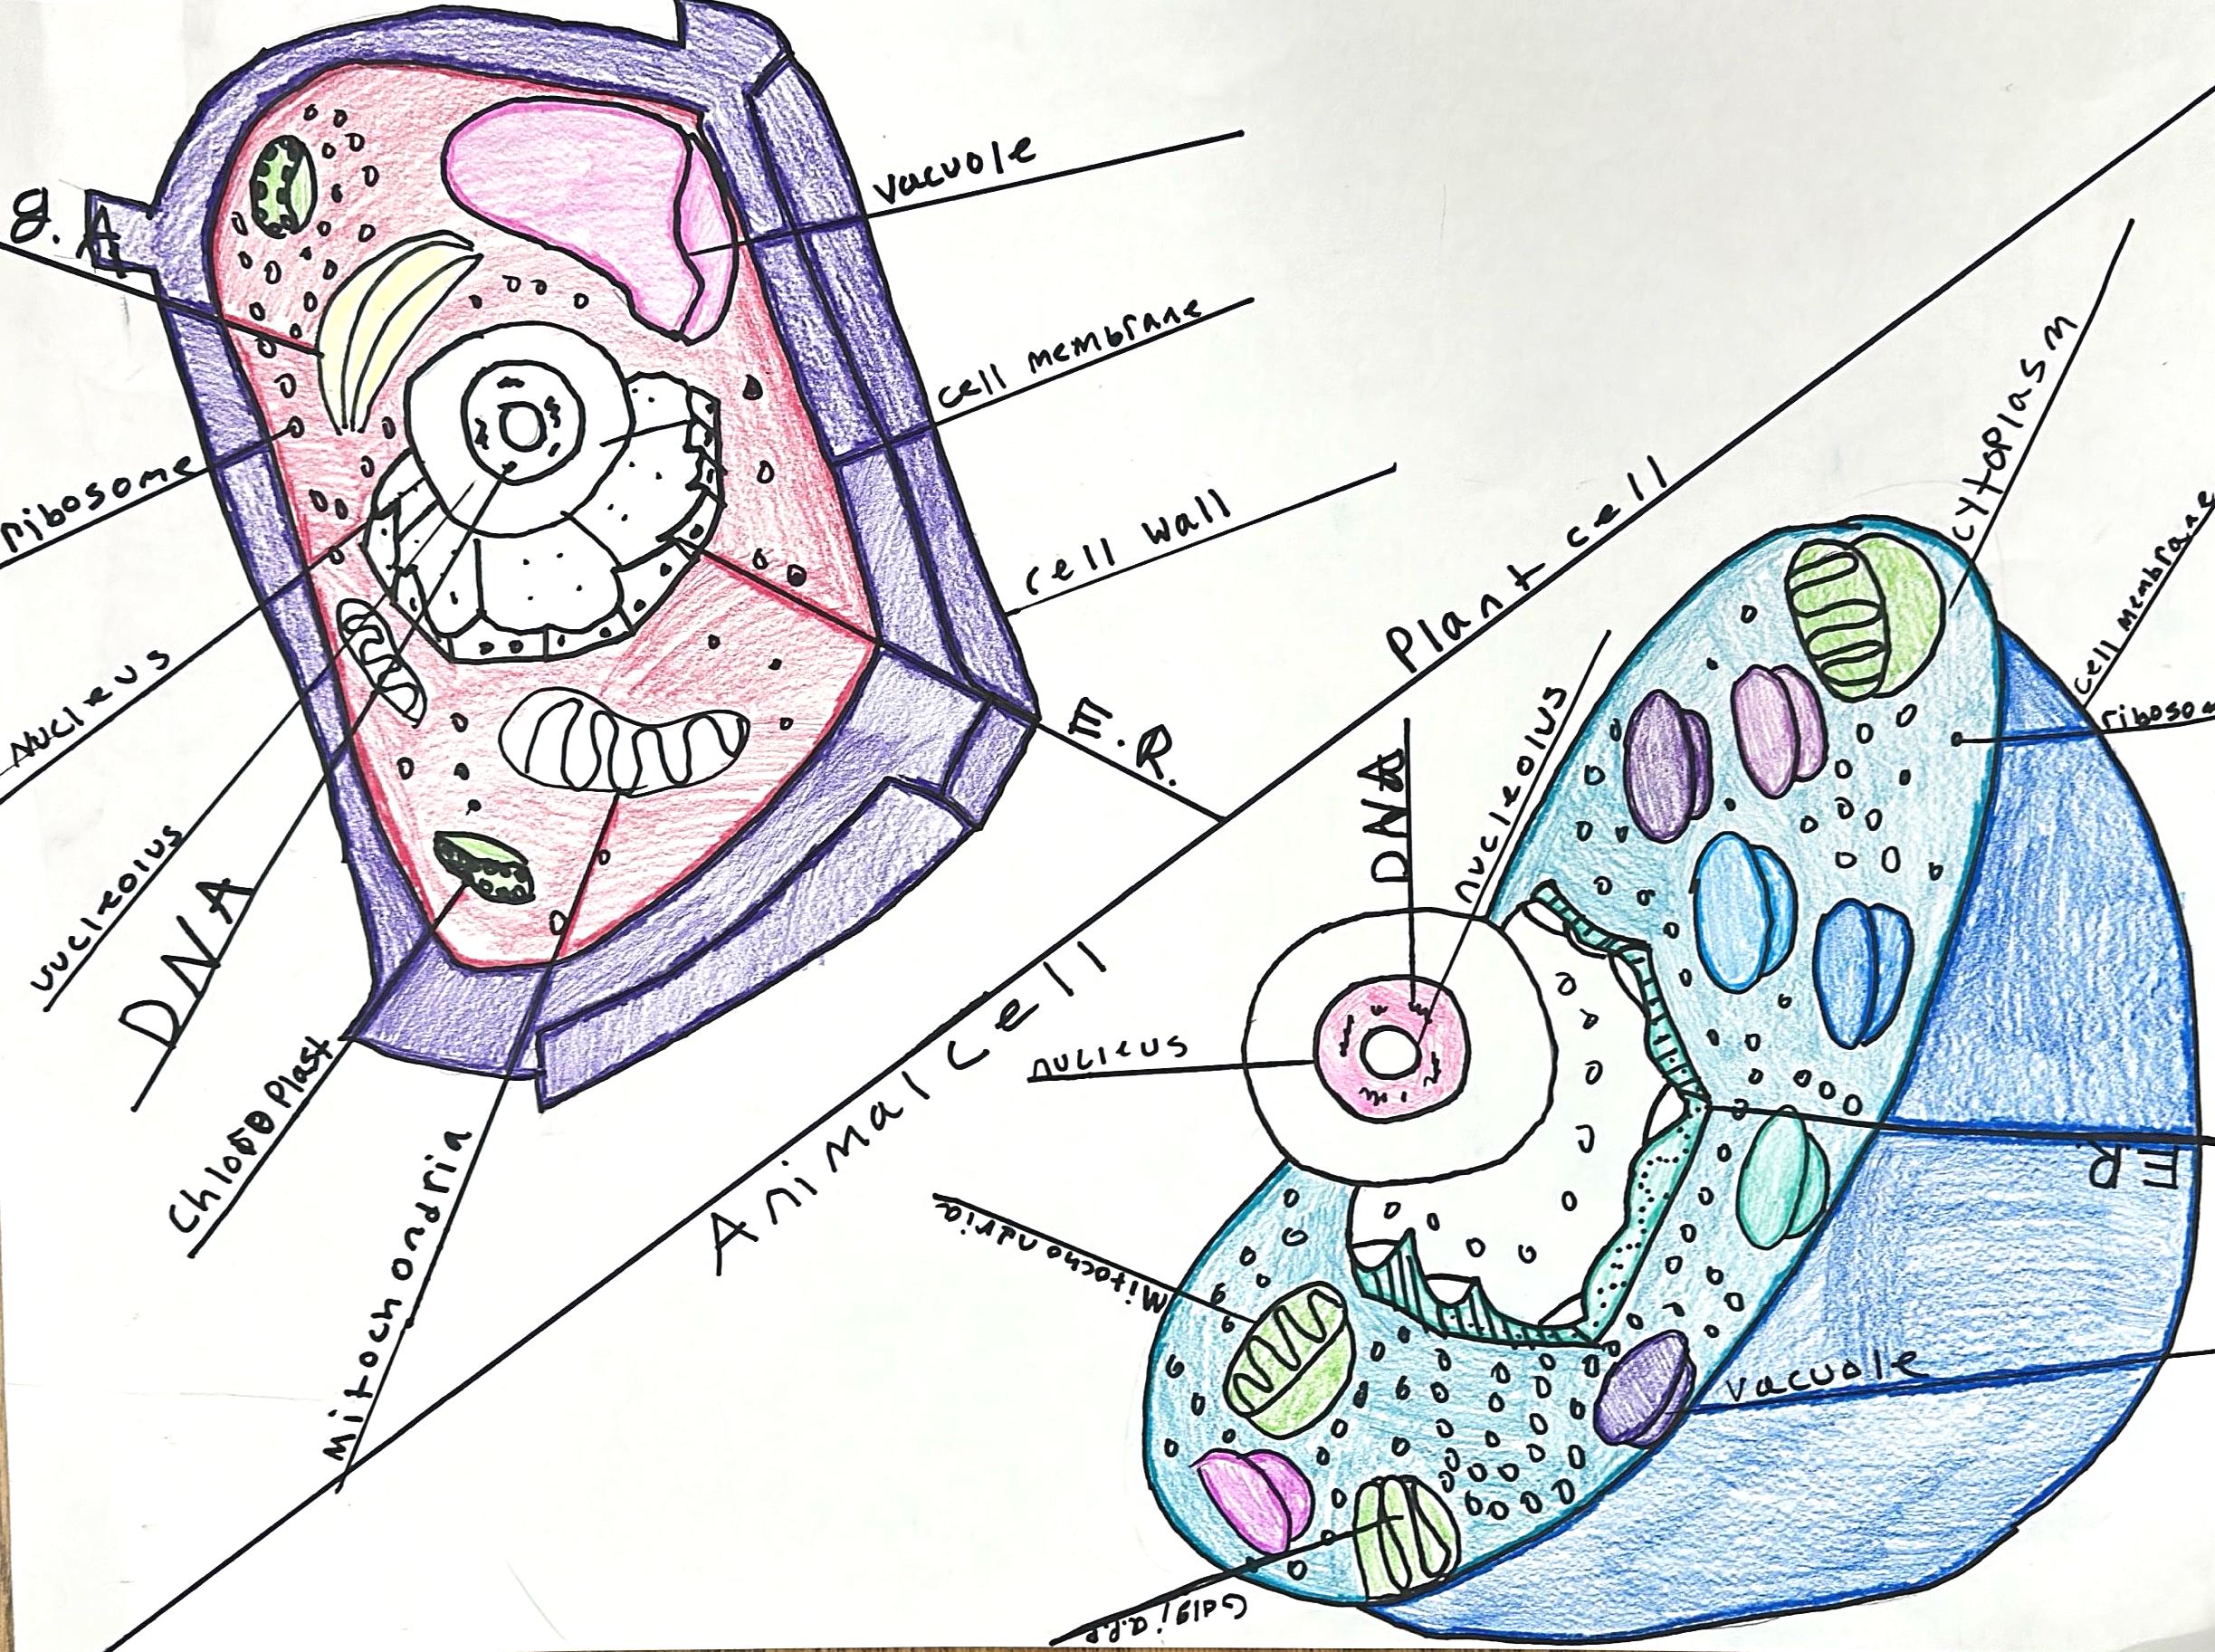 g. A
ribosome
Nucleus
nucleolus
DNA
Chloroplast
Mitochondria
vacuole
cell membrane
cell wall
E.R.
Plant cell
Animal cell
cytoplasm
cell membrane
ribosom
nucleolus
DNA
nucleus
Mitochondria
ER
vacuole
Golgi a.p.p